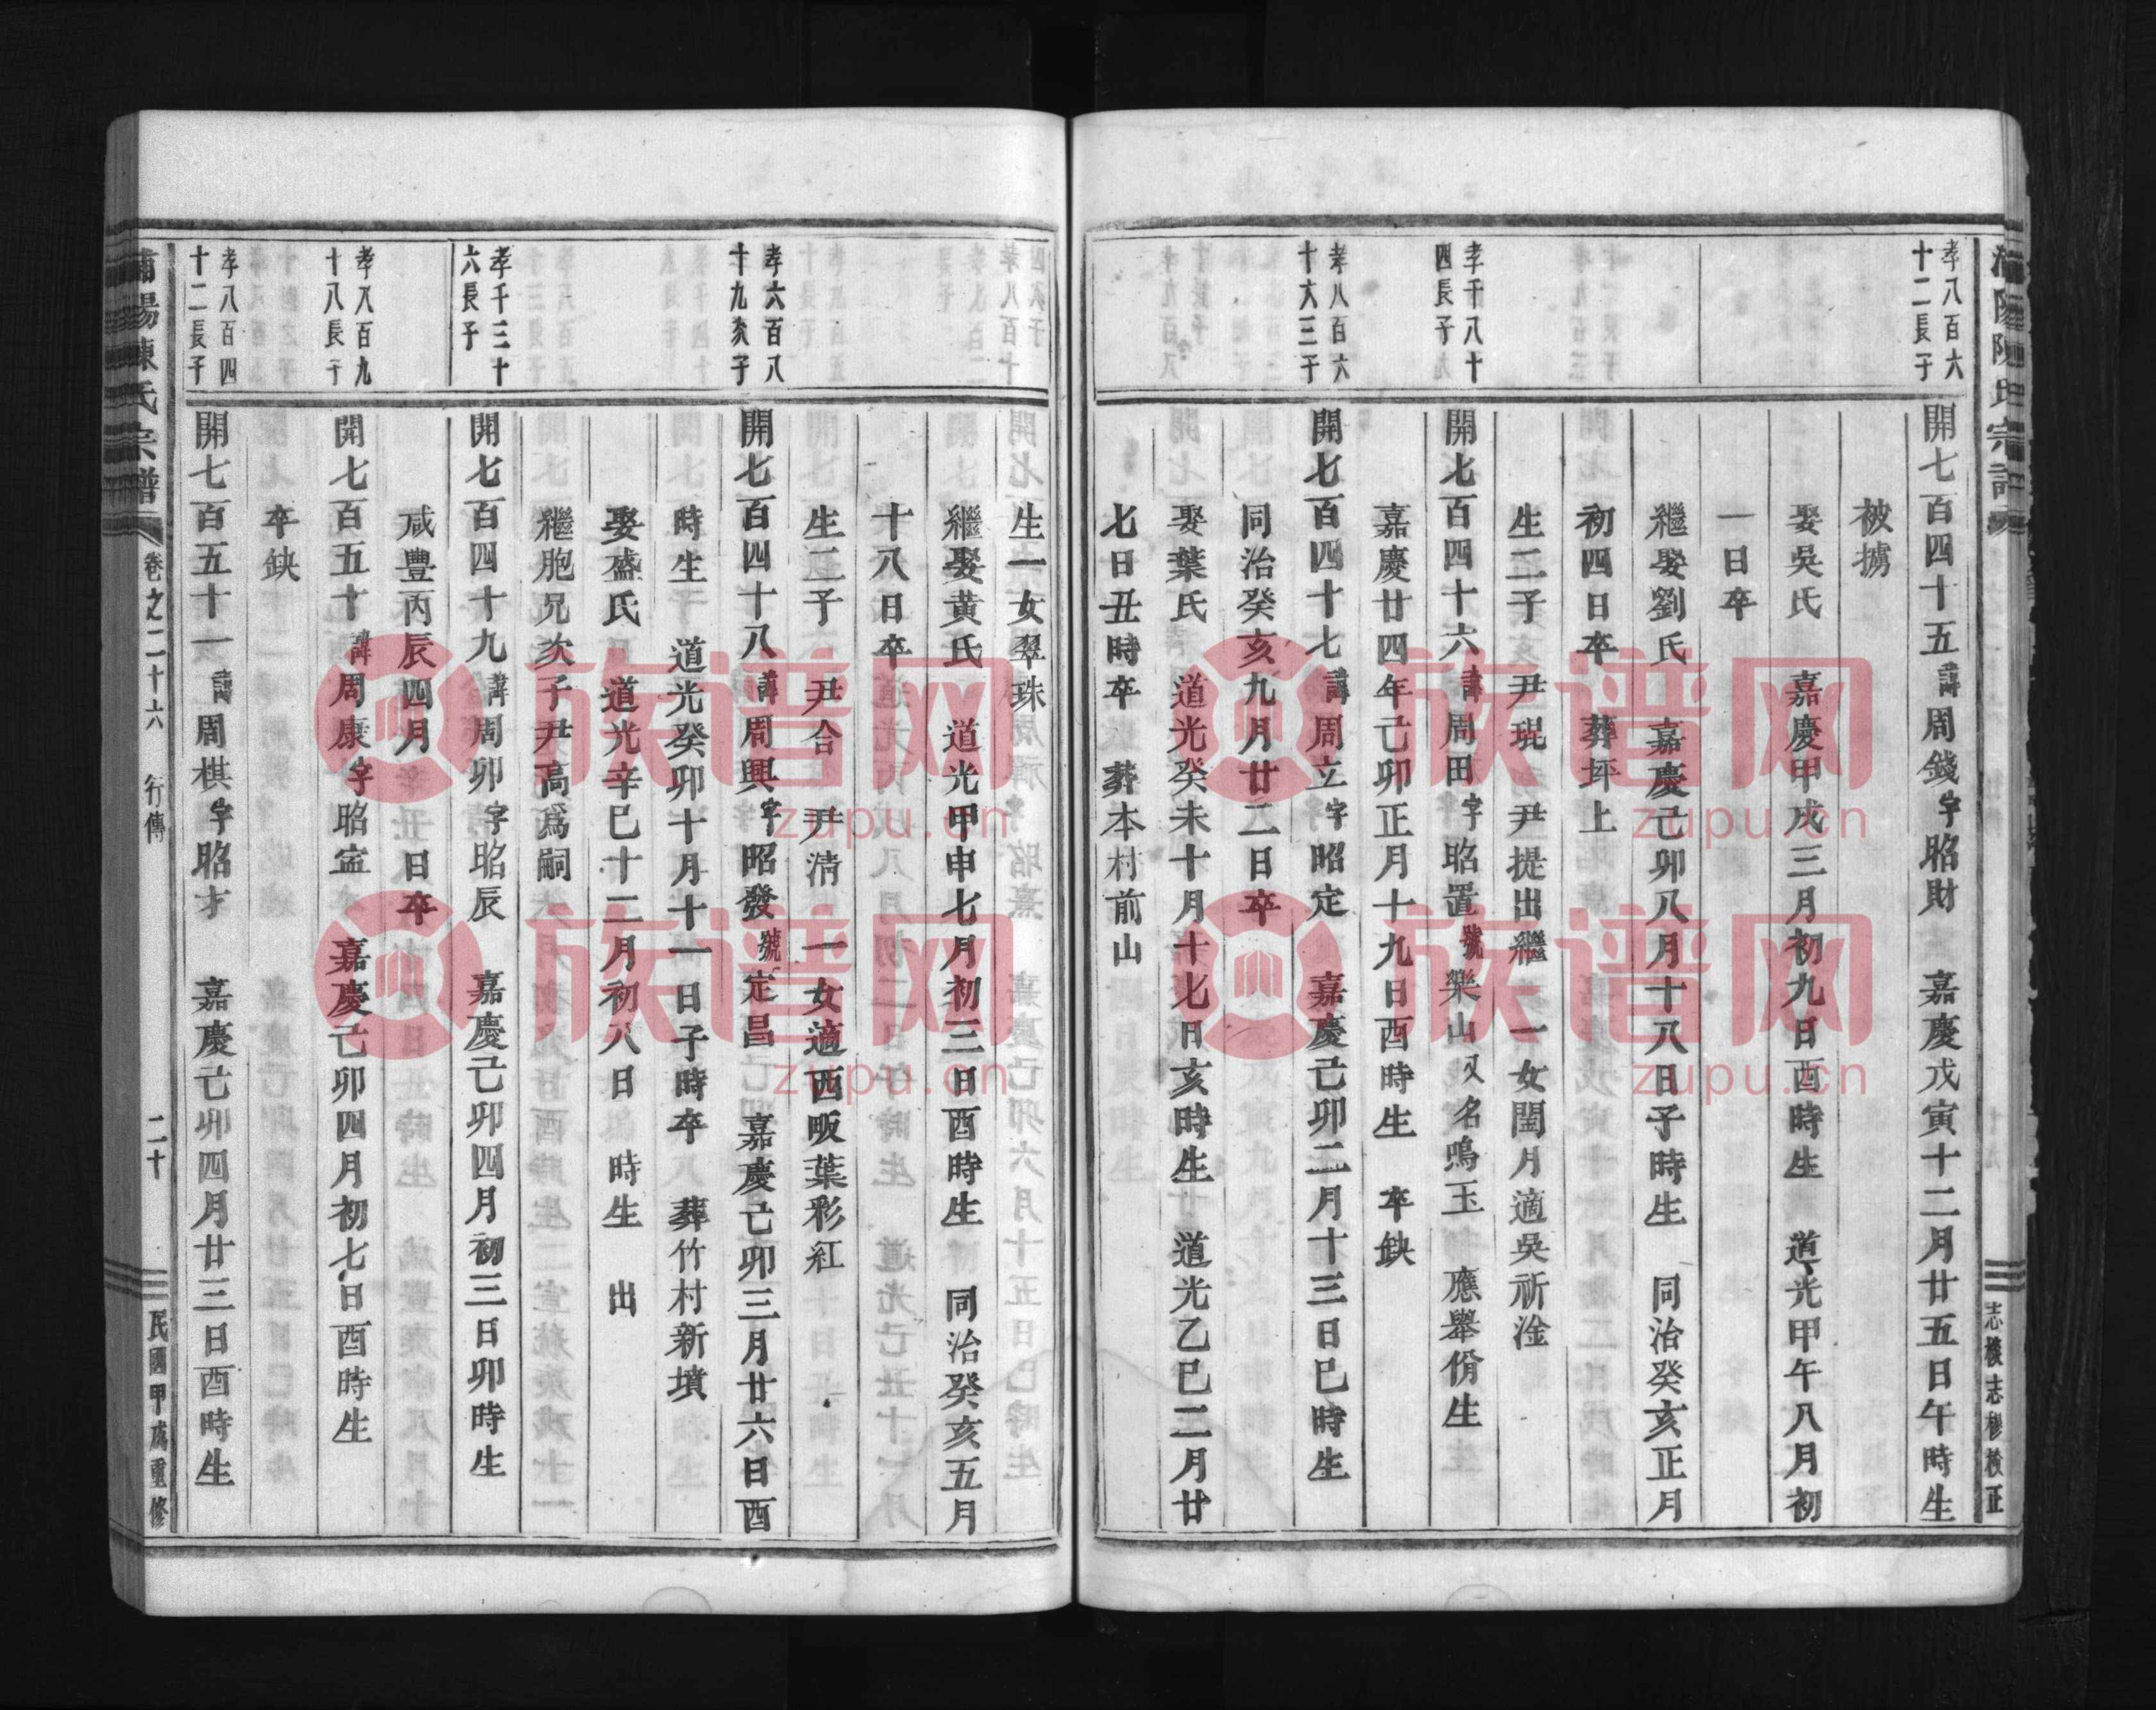 孝八百六
十二長子
開七百四十五諱周錢字昭財 嘉慶戊寅十二月廿五日午時生
被擄
娶吳氏 嘉慶甲戌三月初九日酉時生 道光甲午八月初
一日卒
繼娶劉氏 嘉慶己卯八月十八日子時生 同治癸亥正月
初四日卒 葬坪上
生二子 尹琨 尹提出繼 一女閏月適吳祈淦
孝千八十
四長子
開七百四十六諱周田字昭置號樂山又名鳴玉 應舉佾生
嘉慶廿四年己卯正月十九日酉時生 卒缺
孝八百六
十六三子
開七百四十七諱周立字昭定 嘉慶己卯二月十三日巳時生
同治癸亥九月廿二日卒
娶葉氏 道光癸未十月十七日亥時生 道光乙巳二月廿
七日丑時卒 葬本村前山
生一女翠珠
繼娶黃氏 道光甲申七月初三日酉時生 同治癸亥五月
十八日卒
生二子 尹合 尹清 一女適西畈葉彩紅
孝六百八
十九次子
開七百四十八諱周興字昭發號定昌 嘉慶己卯三月廿六日酉
時生 道光癸卯十月十一日子時卒 葬竹村新墳
娶盛氏 道光辛巳十二月初八日 時生 出
繼胞兄次子尹高為嗣
孝千三十
六長子
開七百四十九諱周卯字昭辰 嘉慶己卯四月初三日卯時生
咸豐丙辰四月 日卒
孝八百九
十八長子
開七百五十諱周康字昭寍 嘉慶己卯四月初七日酉時生
卒缺
孝八百四
十二長子
開七百五十一諱周棋字昭才 嘉慶己卯四月廿三日酉時生
浦陽陳氏宗譜
卷之二十六 行傳
二十
民國甲戌重修
族谱网
zupu.cn
族谱网
zupu.cn
族谱网
zupu.cn
族谱网
zupu.cn